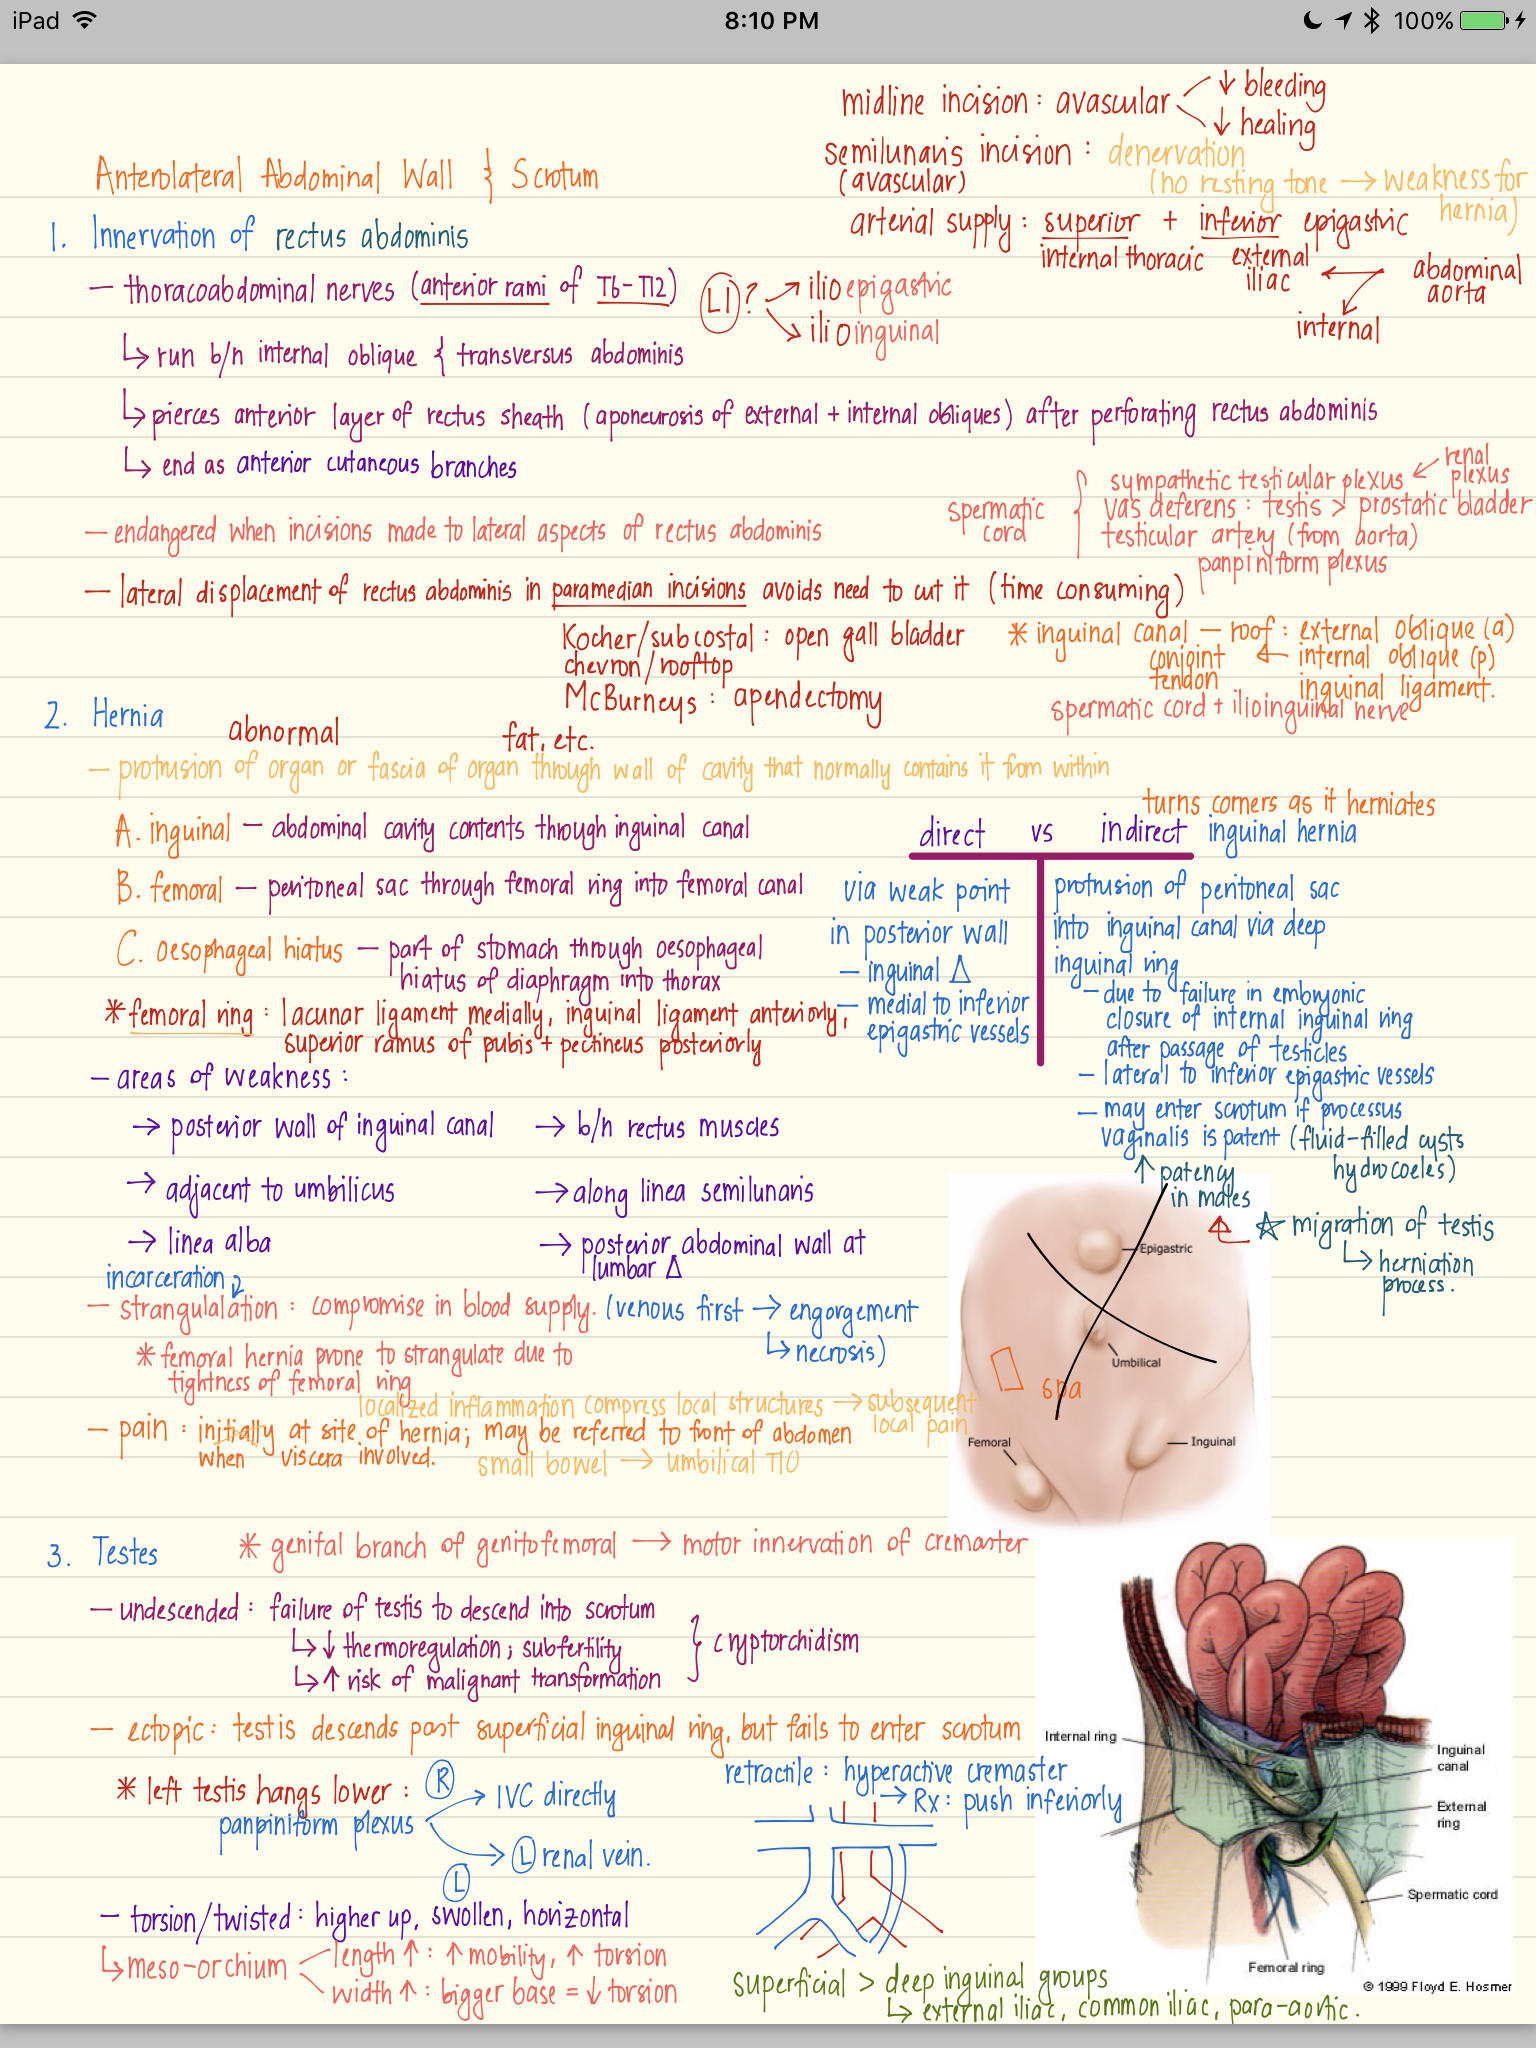 iPad
8:10 PM
100%
midline incision : avascular
↓ bleeding
↓ healing
semilunaris incision : denervation
(avascular)
(no resting tone → weakness for
hernia)
Anterolateral Abdominal Wall & Scrotum
arterial supply : superior + inferior epigastric
internal thoracic
external
iliac
abdominal
aorta
internal
1. Innervation of rectus abdominis
— thoracoabdominal nerves (anterior rami of T6-T12)
L1 ?
ilioepigastric
ilioinguinal
↳ run b/n internal oblique & transversus abdominis
↳ pierces anterior layer of rectus sheath (aponeurosis of external + internal obliques) after perforating rectus abdominis
↳ end as anterior cutaneous branches
— endangered when incisions made to lateral aspects of rectus abdominis
spermatic
cord
sympathetic testicular plexus ← renal
plexus
vas deferens : testis > prostatic bladder
testicular artery (from aorta)
panpiniform plexus
— lateral displacement of rectus abdominis in paramedian incisions avoids need to cut it (time consuming)
Kocher/subcostal : open gall bladder
chevron/rooftop
McBurneys : apendectomy
* inguinal canal — roof : external oblique (a)
conjoint
tendon
← internal oblique (p)
inguinal ligament.
spermatic cord + ilioinguinal nerve
2. Hernia
abnormal
fat, etc.
— protrusion of organ or fascia of organ through wall of cavity that normally contains it from within
A. inguinal — abdominal cavity contents through inguinal canal
B. femoral — peritoneal sac through femoral ring into femoral canal
C. oesophageal hiatus — part of stomach through oesophageal
hiatus of diaphragm into thorax
* femoral ring : lacunar ligament medially, inguinal ligament anteriorly,
superior ramus of pubis + pectineus posteriorly
turns corners as it herniates
direct vs indirect inguinal hernia
via weak point
in posterior wall
— inguinal Δ
— medial to inferior
epigastric vessels
protrusion of peritoneal sac
into inguinal canal via deep
inguinal ring
— due to failure in embryonic
closure of internal inguinal ring
after passage of testicles
— lateral to inferior epigastric vessels
— may enter scrotum if processus
vaginalis is patent (fluid-filled cysts
hydrocoeles)
↑ patency
in males
☆ migration of testis
↳ herniation
process.
— areas of weakness :
→ posterior wall of inguinal canal
→ b/n rectus muscles
→ adjacent to umbilicus
→ along linea semilunaris
→ linea alba
→ posterior abdominal wall at
lumbar Δ
incarceration
— strangulalation : compromise in blood supply. (venous first → engorgement
↳ necrosis)
* femoral hernia prone to strangulate due to
tightness of femoral ring
localized inflammation compress local structures → subsequent
local pain
— pain : initially at site of hernia; may be referred to front of abdomen
when viscera involved.
small bowel → umbilical T10
Epigastric
Umbilical
spa
Femoral
Inguinal
3. Testes
* genital branch of genitofemoral → motor innervation of cremaster
— undescended : failure of testis to descend into scrotum
↳ ↓ thermoregulation ; subfertility
↳ ↑ risk of malignant transformation
} cryptorchidism
— ectopic : testis descends past superficial inguinal ring, but fails to enter scrotum
* left testis hangs lower :
panpiniform plexus
R
→ IVC directly
L
→ L renal vein.
retractile : hyperactive cremaster
→ Rx : push inferiorly
— torsion/twisted : higher up, swollen, horizontal
↳ meso-orchium
length ↑ : ↑ mobility, ↑ torsion
width ↑ : bigger base = ↓ torsion
superficial > deep inguinal groups
↳ external iliac, common iliac, para-aortic.
Internal ring
Inguinal
canal
External
ring
Spermatic cord
Femoral ring
© 1999 Floyd E. Hosmer